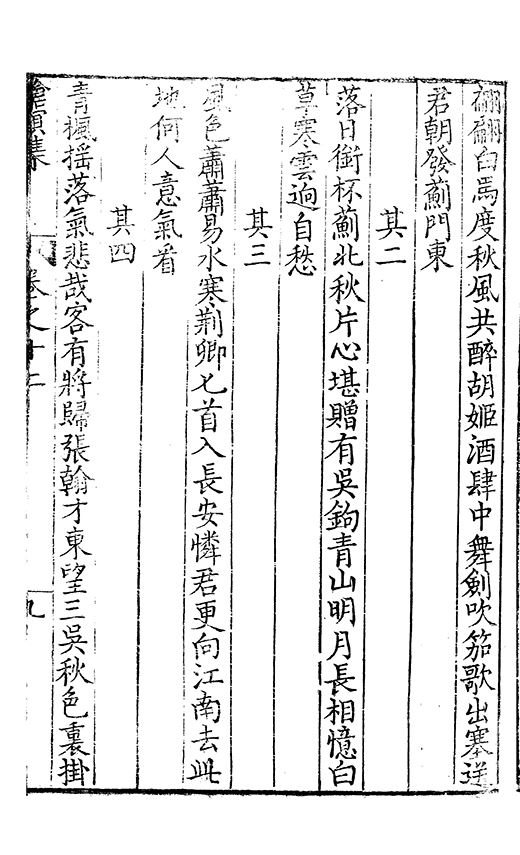 翩翩白馬度秋風共醉胡姬酒肆中舞劍吹笳歌出塞送
君朝發薊門東
其二
落日銜杯薊北秋片心堪贈有吳鉤青山明月長相憶白
草寒雲逈自愁
其三
風色蕭蕭易水寒荆卿匕首入長安憐君更向江南去此
地何人意氣看
其四
青楓搖落氣悲哉客有將歸張翰才東望三吳秋色裏掛
滄溟集
卷之十二
九